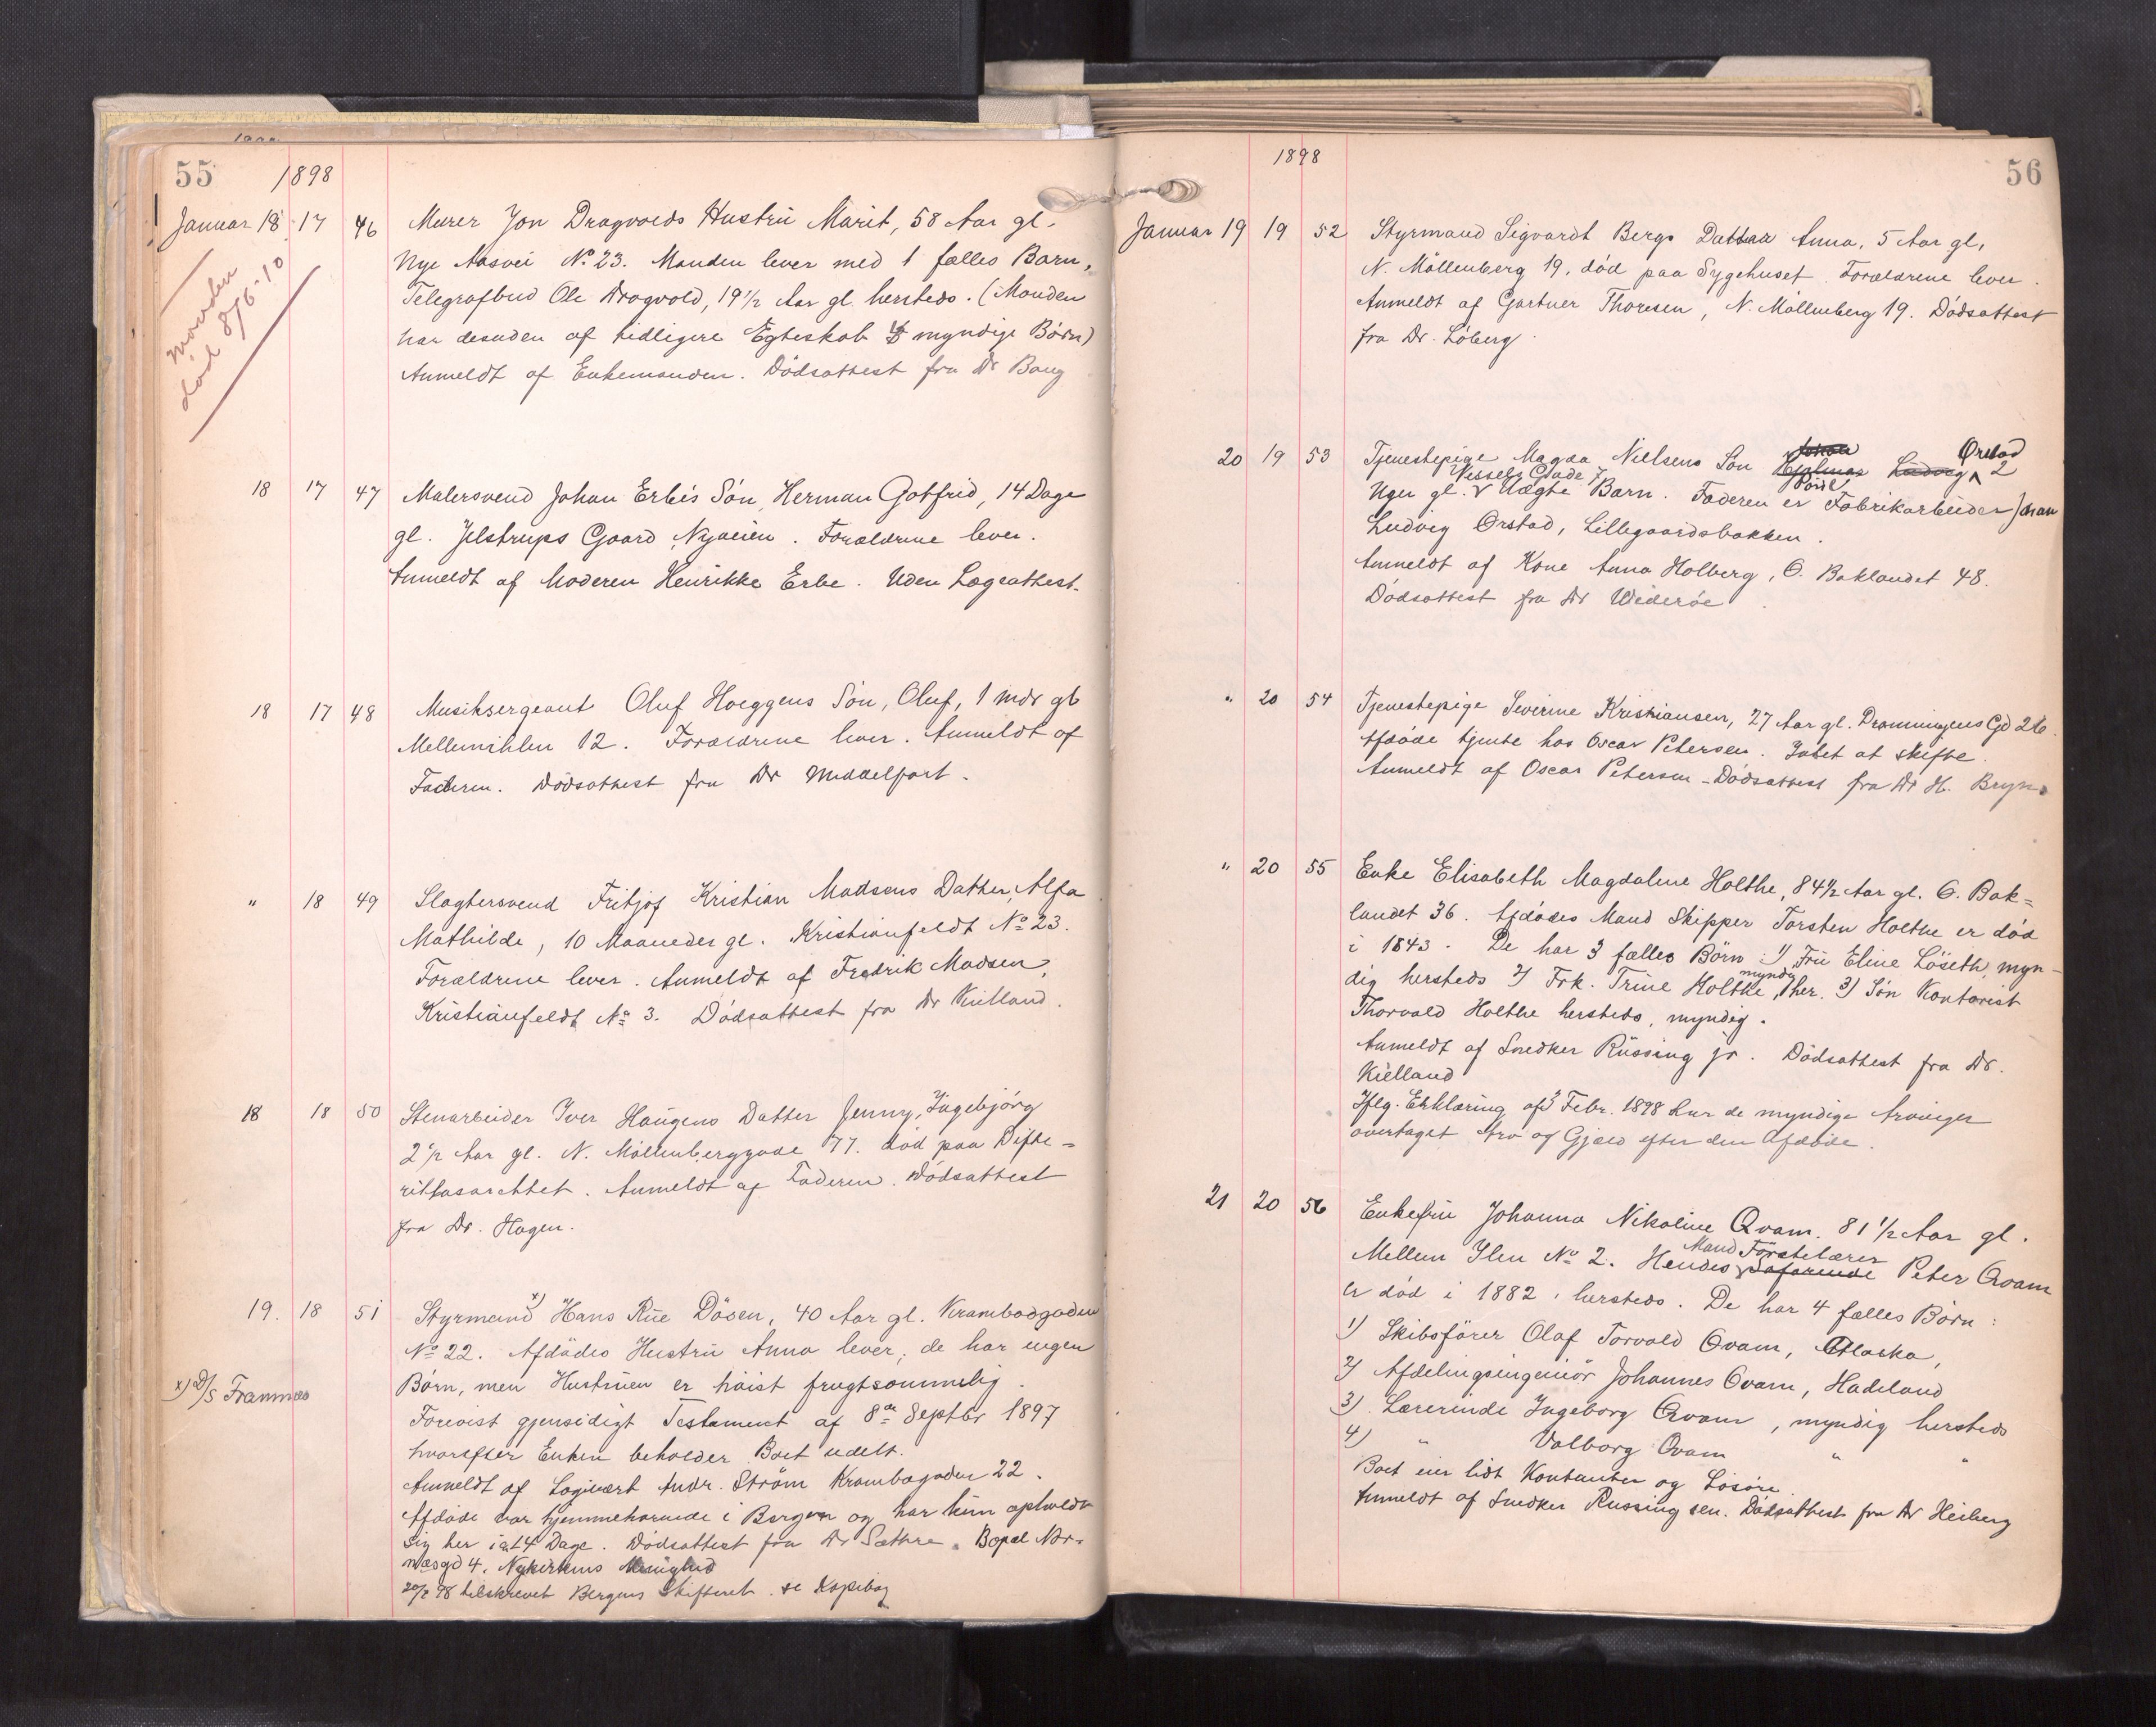 55 1898
Januar 18 17 46 Murer Jon Dragvolds Hustru Marit, 58 Aar gl.
Nye Aasvei No 23. Manden lever med 1 fælles Barn,
Telegrafbud Ole Dragvold, 19 1/2 Aar gl hersteds. (Manden
har desuden af tidligere Egteskab myndige Børn)
Anmeldt af Enkemanden. Dødsattest fra Dr Baug
Manden
død 8/6-10
18 17 47 Malersvend Johan Erbes Søn, Herman Gotfred, 14 Dage
gl. Jelstrups Gaard, Nyveien. Forældrene lever.
Anmeldt af Moderen Henrikke Erbe. Uden Lægeattest.
18 17 48 Musiksergeant Oluf Hoeggens Søn, Oluf, 1 mdr gl
Mellemihlen 12. Forældrene lever. Anmeldt af
Faderen. Dødsattest fra Dr Middelfart.
" 18 49 Slagtersvend Fritjof Kristian Madsens Datter, Alfa
Mathilde, 10 Maaneder gl. Kristianfeldt No 23.
Forældrene lever. Anmeldt af Fredrik Madsen,
Kristianfeldt No 3. Dødsattest fra Dr Kielland.
18 18 50 Stenarbeider Iver Haugens Datter Jenny, Ingebjørg
2 1/2 Aar gl. N. Møllenberggade 77. død paa Difte-
ritlasarettet. Anmeldt af Faderen. Dødsattest
fra Dr. Hagen.
19. 18 51 Styrmand x) Hans Rue Døsen, 40 Aar gl. Krambodgaden
No 22. Afdødes Hustru Anna lever; de har ingen
Børn, men Hustruen er høist frugtsommelig.
x) D/S Framnæs
Forevist gjensidigt Testament af 8de Septbr 1897
hvorefter Enken beholder Boet udelt.
Anmeldt af Logivært Andr. Strøm Krambogaden 22.
Afdøde var hjemmehørende i Bergen og har kun opholdt
sig her i ca 14 Dage. Dødsattest fra Dr Sæthre. Bopæl Nor-
næsgd 4. Nykirkens Menighed
20/2 98 tilskrevet Bergens Skifteret se Kopibog
1898 56
Januar 19 19 52 Styrmand Sigvardt Bergs Datter Anna, 5 Aar gl,
N. Møllenberg 19, død paa Sygehuset. Forældrene lever.
Anmeldt af Gartner Thoresen, N. Møllenberg 19. Dødsattest
fra Dr. Løberg.
20 19 53 Tjenestepige Magda Nielsens Søn Johan Hjalmar Ludvig Ørstad 2
Uger gl. Wessels Gade 7 Uægte Barn. Faderen er Fabrikarbeider Johan
Ludvig Ørstad, Lillegaardsbakken.
Anmeldt af Kone Anna Holberg, Ø. Baklandet 48.
Dødsattest fra Dr Wederøe.
" 20 54 Tjenestepige Severine Kristiansen, 27 Aar gl. Dronningens Gd 26.
Afdøde tjente hos Oscar Petersen. Intet at skifte.
Anmeldt af Oscar Petersen. Dødsattest fra Dr H. Bryn.
" 20 55 Enke Elisabeth Magdalene Holthe, 84 1/2 Aar gl. Ø. Bak-
landet 36. Afdødes Mand Skipper Torsten Holthe er død
i 1843. De har 3 fælles Børn: 1) Fru Eline Løseth, myn-
dig hersteds 2) Frk. Trine Holthe, myndig her. 3) Søn Kontorist
Thorvald Holthe hersteds, myndig.
Anmeldt af Snedker Rüssing jr. Dødsattest fra Dr.
Kielland
Iflg. Erklæring af 3 Febr. 1898 har de myndige Arvinger
overtaget Arv og Gjæld efter den Afdøde.
21 20 56 Enkefru Johanna Nikoline Qvam. 81 1/2 Aar gl.
Mellem Ilen No 2. Hendes Mand Førstelærer Søfarende Peter Qvam
er død i 1882, hersteds. De har 4 fælles Børn:
1) Skibsfører Olaf Torvald Qvam, Alaska,
2) Afdelingsingeniør Johannes Qvam, Hadeland
3) Lærerinde Ingeborg Qvam, myndig hersteds
4) " Valborg Qvam " "
Boet eier lidt Kontanter og Løsøre.
Anmeldt af Snedker Russing sen. Dødsattest fra Dr Heiberg